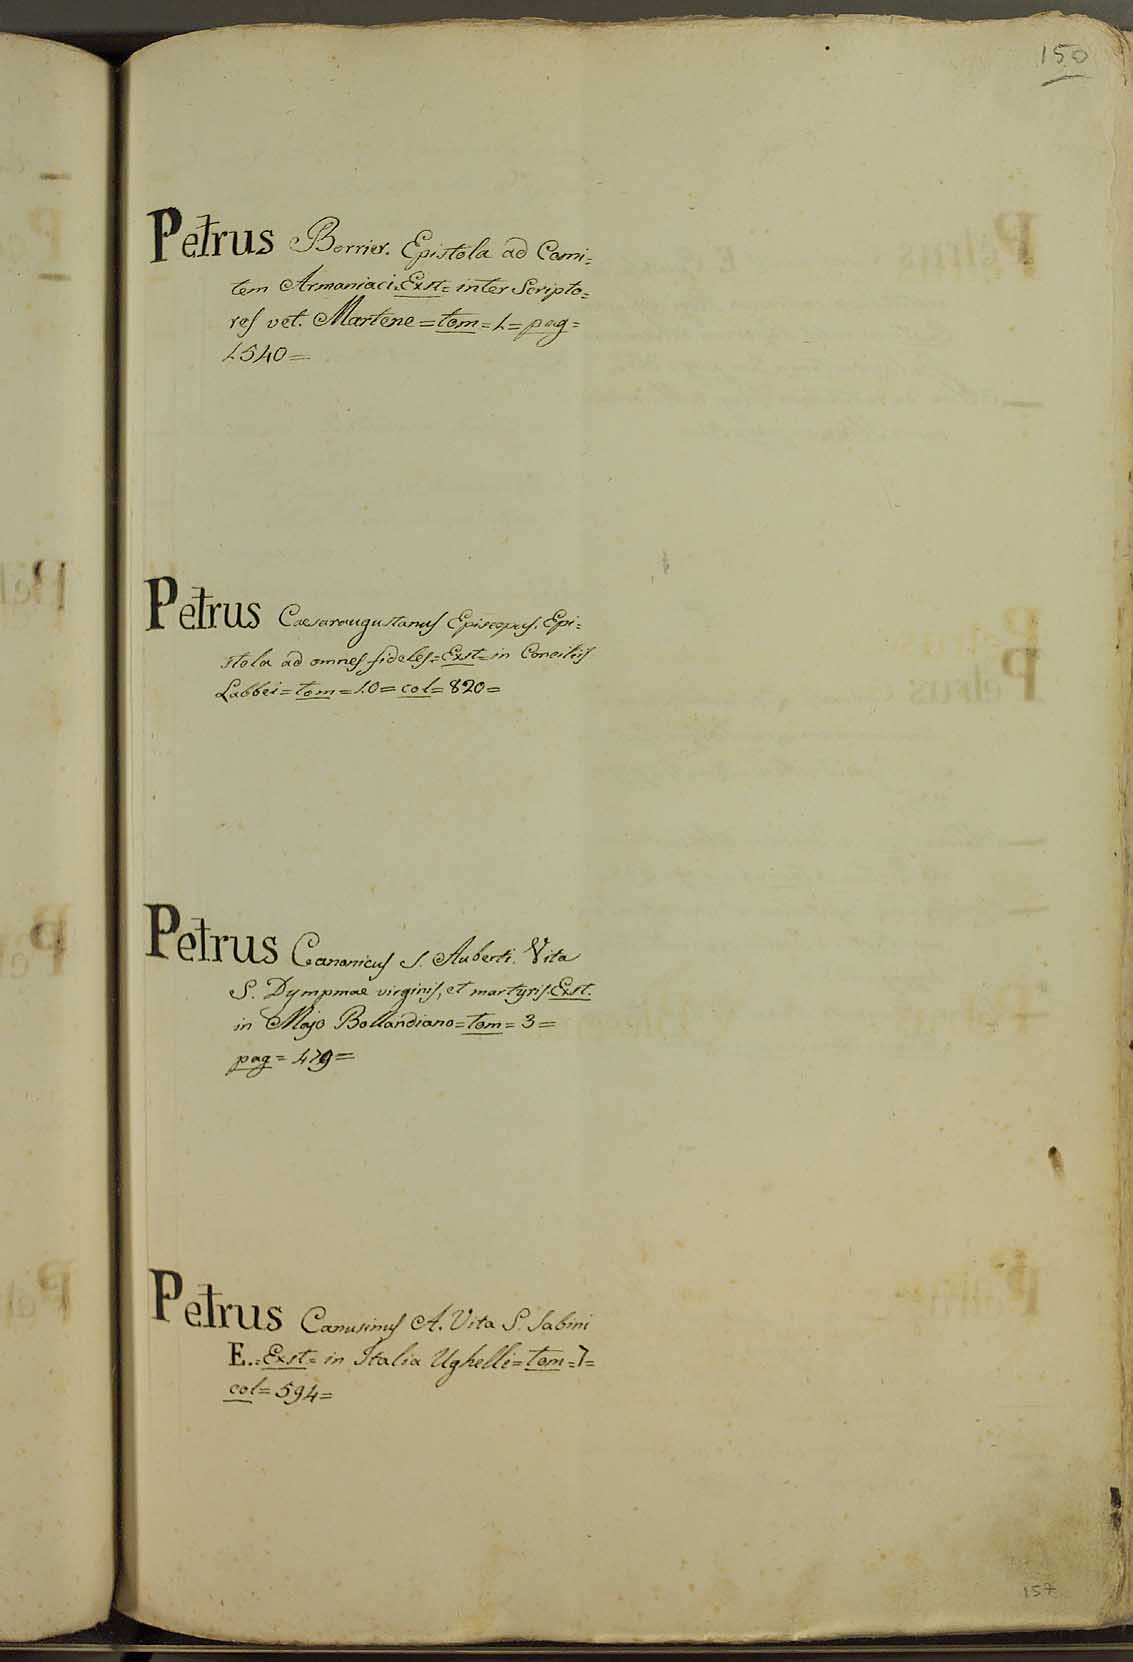 150
Petrus Berrier. Epistola ad Comi=
tem Armaniaci=Exst=inter Scripto=
res vet. Martene=tom=1=pag=
1540=
Petrus Caesaraugustanus Episcopus. Epi=
stola ad omnes fideles=Exst=in Conciliis
Labbei=tom=10=col=820=
Petrus Canonicus S. Auberti. Vita
S. Dympmae virginis, et martyris Exst.
in Majo Bollandiano=tom=3=
pag=479=
Petrus Canusinus A. Vita S. Sabini
E.=Exst=in Italia Ughelli=tom=7=
col=594=
157